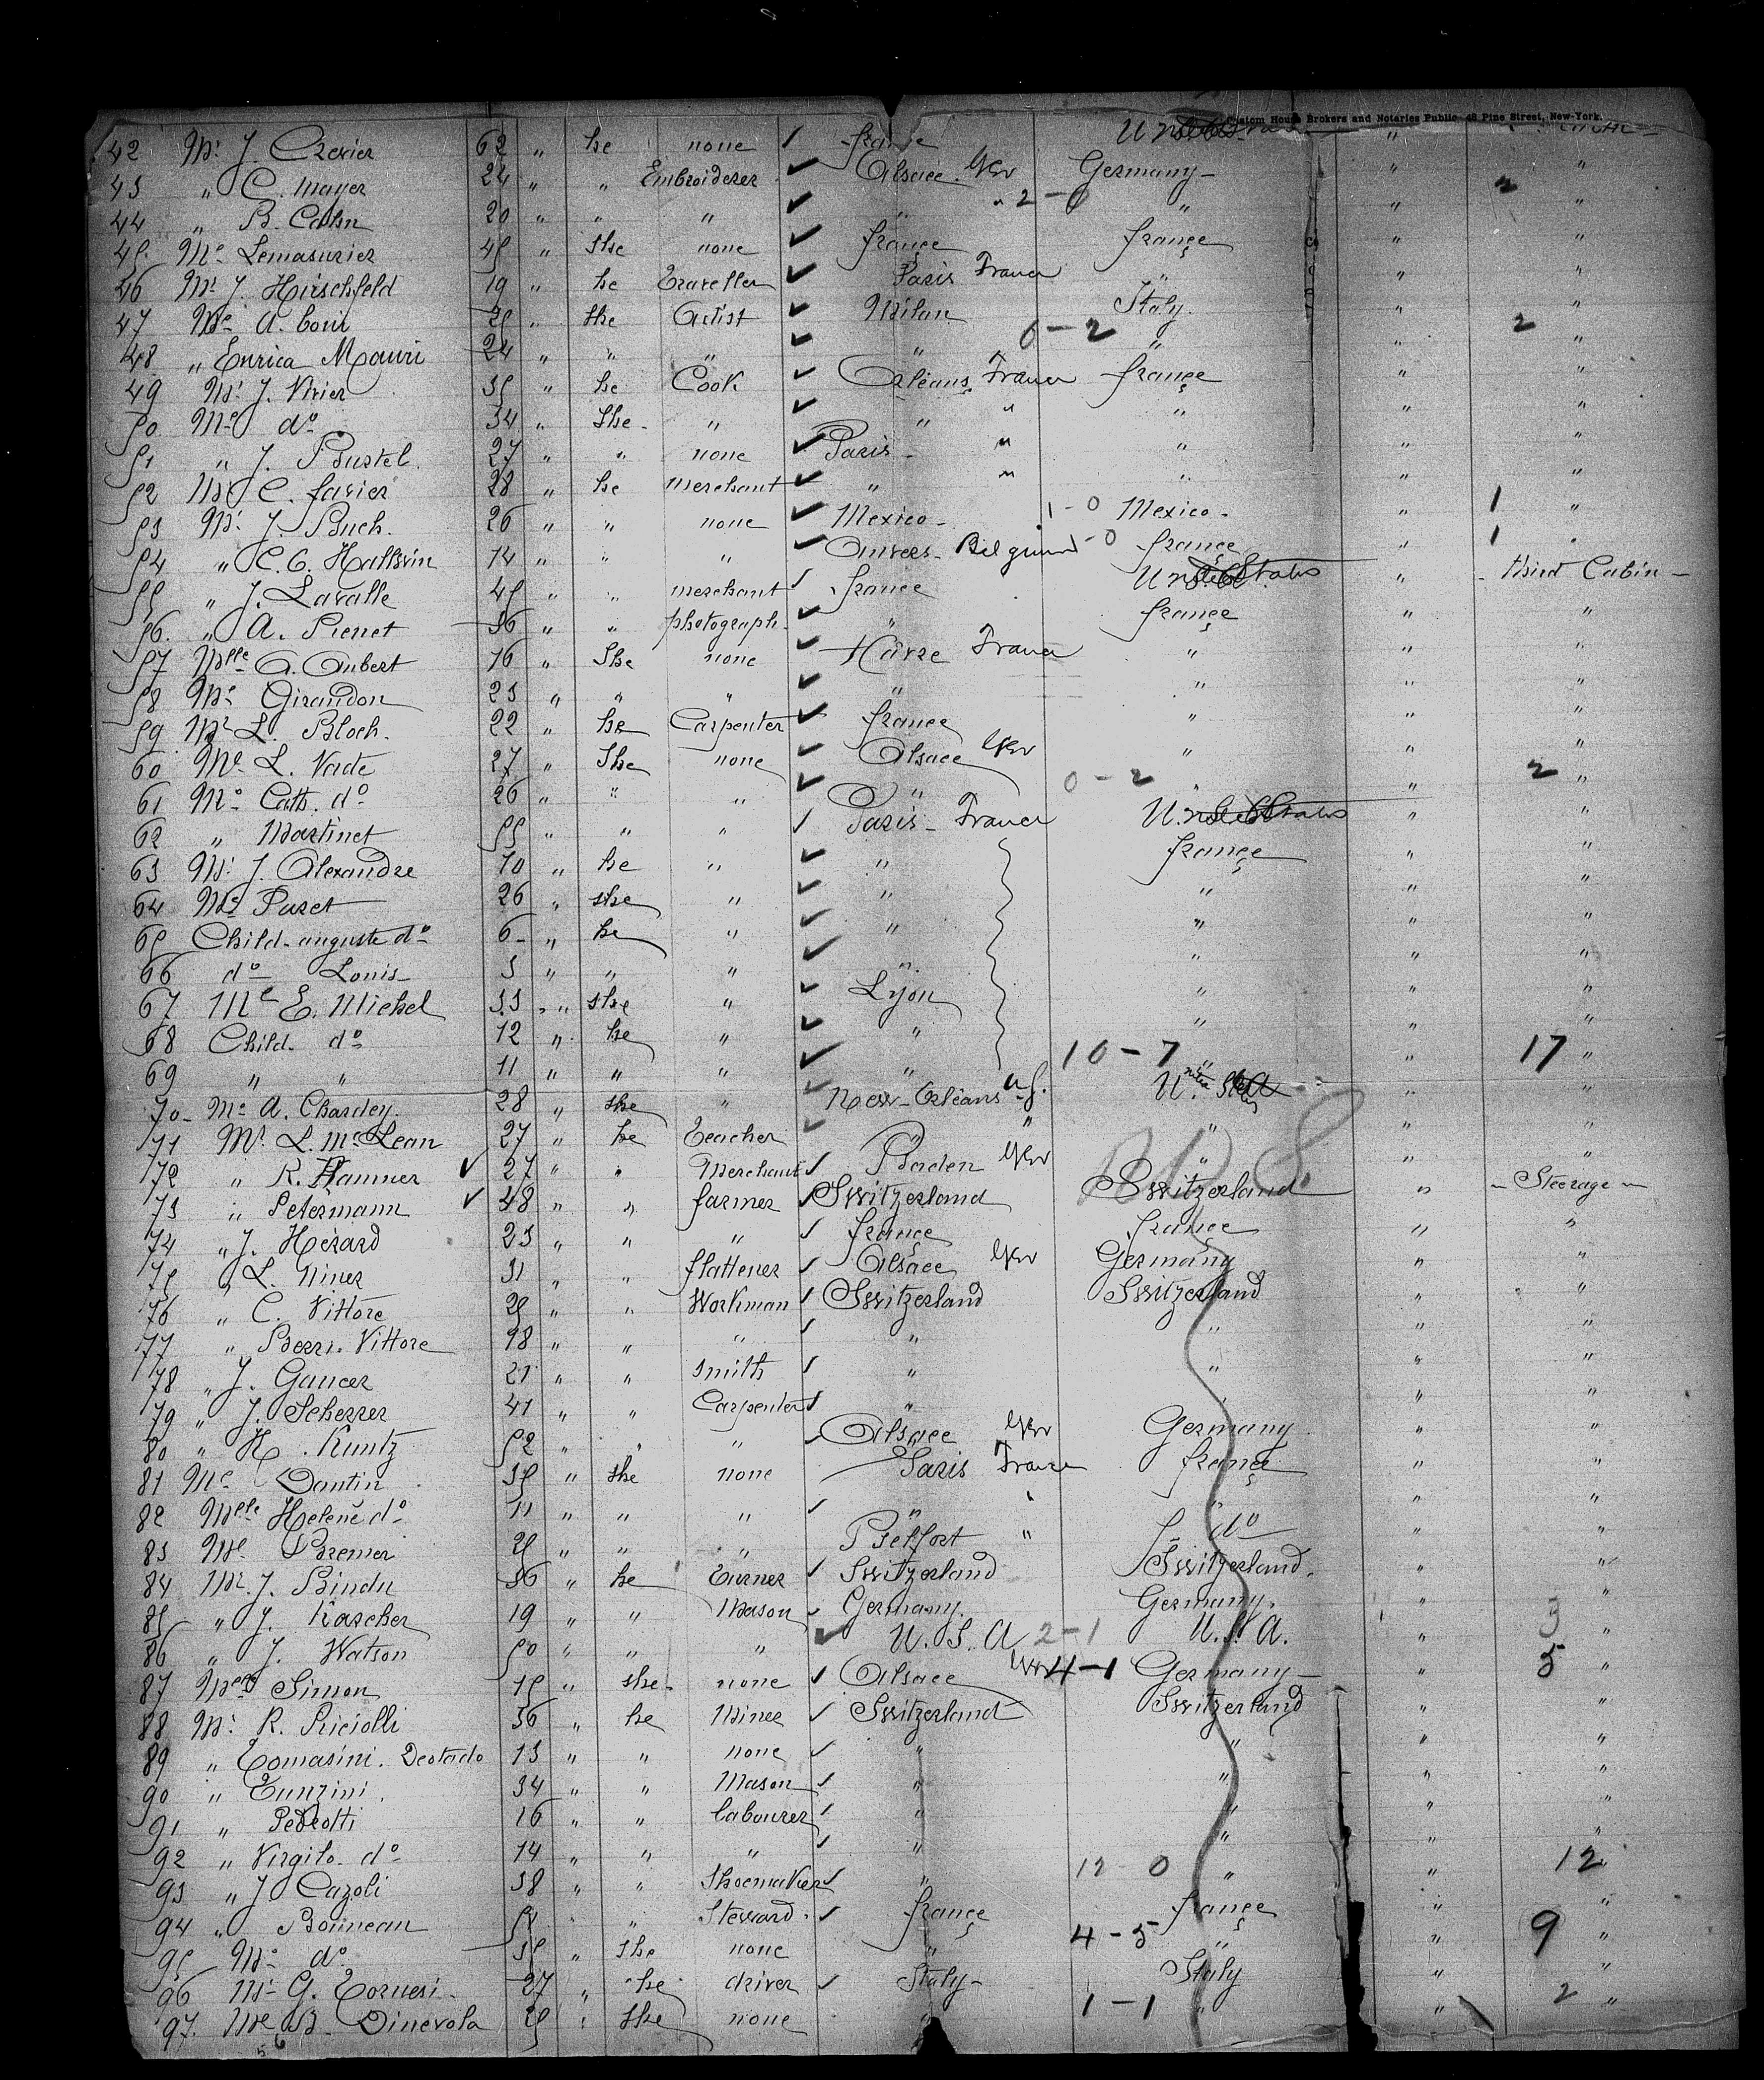 Custom House Brokers and Notaries Public, 48 Pine Street, New-York.
42 Mr. J. Crevier 62 " he none ✓ france
43 " C. Mayer 24 " " Embroiderer ✓ Alsace Ger Germany " 2 "
44 " B. Cahn 20 " " " ✓ " 2 - " " "
45 Me Lemasurier 45 " She none ✓ france france " "
46 Mr J. Hirschfeld 19 " he Traveller ✓ Paris France " " "
47 Me A. Coni 25 " she Artist ✓ Milan Italy. " "
48 " Enrica Mauri 24 " " " ✓ " 0-2 " " 2 "
49 Mr. J. Vrier 35 " he Cook ✓ Orléans France france " "
50 Me do 34 " She " ✓ " " " " "
51 " J. Bustel. 27 " " none ✓ Paris " " " "
52 Mr C. favier 28 " he Merchant ✓ " " " " "
53 Mr. J. Buch. 26 " " none ✓ Mexico - 1-0 Mexico - " 1 "
54 " C. C. Hallsvin 14 " " " ✓ Anvers - Belgium -0 france " 1 "
55 " J. Lavalle 45 " " merchant ✓ france United States " - third Cabin -
56. " A. Pienet 36 " " photograph. ✓ " france " "
57 Mlle A. Aubert 16 " She none ✓ Havre France " " "
58 Me Girandon 23 " " " ✓ " " " "
59 Mr L. Bloch. 22 " he Carpenter ✓ france " " "
60 Me L. Vade 27 " She none ✓ Alsace Ger " " "
61 Me Cath. do 26 " " " ✓ " 0-2 " " 2 "
62 " Martinet 55 " " " ✓ Paris - France United States " "
63 Mr. J. Alexandre 10 " he " ✓ " france " "
64 Me Puset 26 " she " ✓ " " " "
65 Child - auguste do 6 - " he " ✓ " " " "
66 do Louis 3 " " " ✓ " " " "
67 Me E. Michel 33 " she " ✓ Lyon " " "
68 Child. do 12 " he " ✓ " " " "
69 " " 11 " " " ✓ " 10-7 " " 17 "
70 - Me A. Chardey. 28 " she " ✓ New-Orléans U.S. United States " "
71 Mr. L. Mc Lean 27 " he Teacher " " " " "
72 " R. Hammer ✓ 27 " " Merchant ✓ Baden Ger " " "
73 " Petermann ✓ 48 " " farmer ✓ Switzerland Switzerland " - Steerage -
74 " J. Herard 23 " " " ✓ france france " "
75 " L. Niner 31 " " flattener ✓ Alsace Ger Germany " "
76 " C. Vittore 25 " " Workman ✓ Switzerland Switzerland " "
77 " Bezzi. Vittore 18 " " " ✓ " " " "
78 " J. Gaucer 21 " " Smith ✓ " " " "
79 " J. Scherrer 41 " " Carpenter ✓ " " " "
80 " H. Kuntz 52 " " " ✓ Alsace Ger Germany " "
81 Me Dantin 35 " she none Paris France france " "
82 Melle Helene do 11 " " " ✓ " " " " "
83 Me Bremer 25 " " " Belfort " do " "
84 Mr. J. Bindu 36 " he Turner ✓ Switzerland Switzerland. " "
85 " J. Kascher 19 " " Mason ✓ Germany. Germany. " "
86 " J. Watson 50 " " " ✓ U.S.A 2-1 U.S.A. " 3 "
87 Melle Simon 15 " she - none ✓ Alsace Ger 4-1 Germany - " 5 "
88 Mr. R. Riciolli 36 " he Miner ✓ Switzerland Switzerland " "
89 " Tomasini. Deotado 13 " " none ✓ " " " "
90 " Tunzini. 34 " " Mason ✓ " " " "
91 " Pedrotti 16 " " labourer ✓ " " " "
92 " Virgilo - do 14 " " " ✓ " " " "
93 " J. Cazoli 38 " " Shoemaker ✓ " 12 - 0 " " 12 "
94 " Bonneau " " Steward. ✓ france france " "
95 Me do 35 " she none " 4-5 " " 9 "
96 Mr G. Tornesi - 27 " he driver ✓ Italy - Italy " "
97. Me B. Dinevola 25 " she none " 1-1 " " 2 "
108
5 6